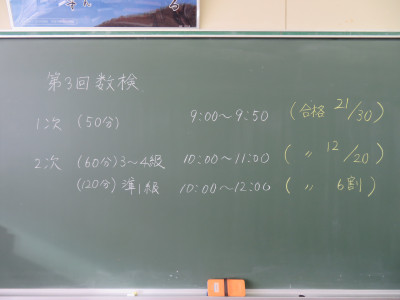 第3回数検
1次 (50分) 9:00〜9:50 (合格 21/30)
2次 (60分) 3〜4級 10:00〜11:00 ( 〃 12/20)
(120分) 準1級 10:00〜12:00 ( 〃 6割)